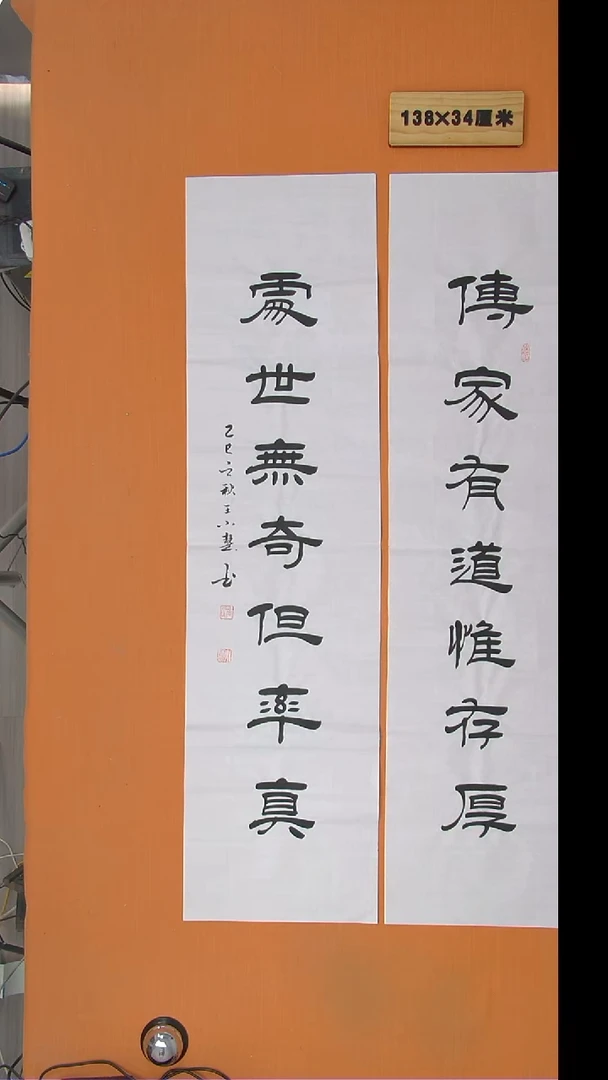 138×34厘米
傳家有道惟存厚
處世無奇但率真
乙巳之秋王小慧书